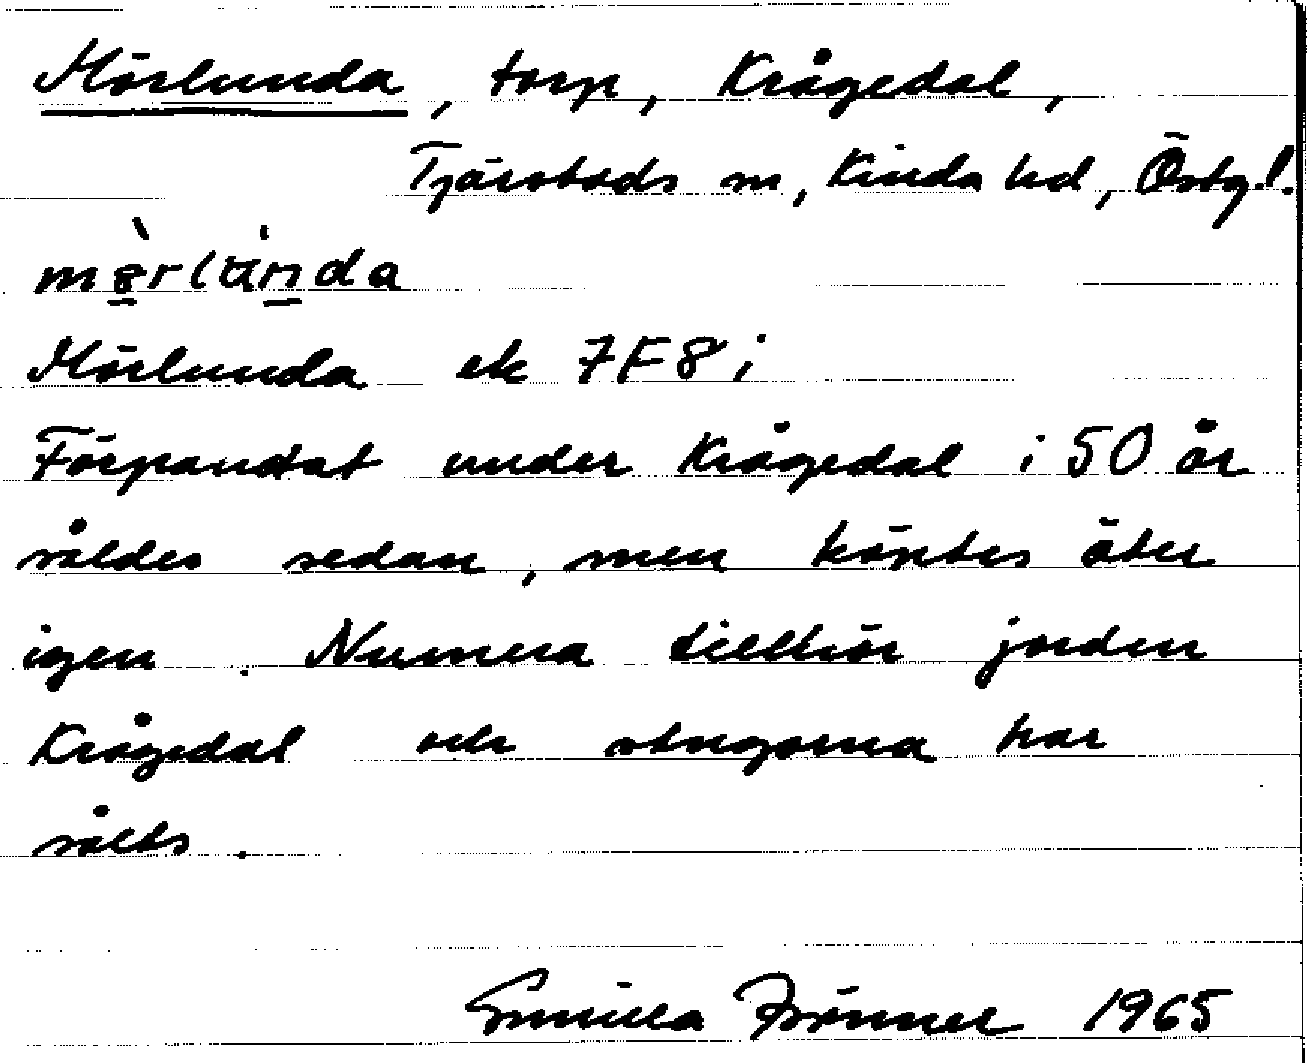 Mörlunda, torp, Krågedal,
Tjärstads sn, Kinda hd, Östg.l.
Mörlunda ek 7F8i
Förpantat under Krågedal i 50 år
såldes sedan, men köptes åter
igen. Numera tillhör jorden
Krågedal och stugorna har
sålts.
Gunilla 1965